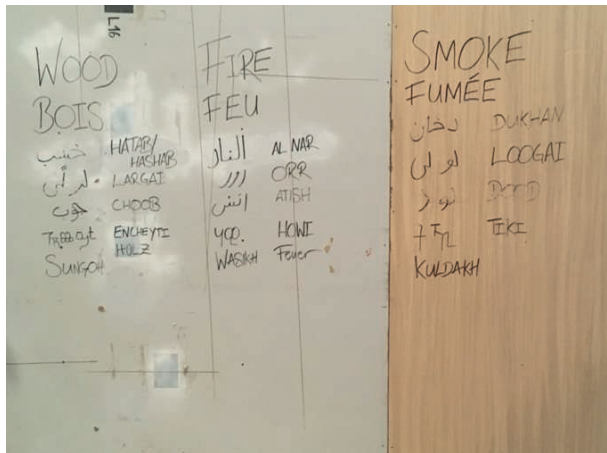 L16
WOOD
BOIS
خشب HATAB/
HASHAB
LARGAI
چوب CHOOB
ENCHEYTI
HOLZ
SUNGOH
FIRE
FEU
ألنار AL NAR
اور ORR
اتش ATISH
HOWI
WASIKH Feuer
SMOKE
FUMÉE
دخان DUKHAN
لو لی LOOGAI
DOOD
TIKI
KULDAKH